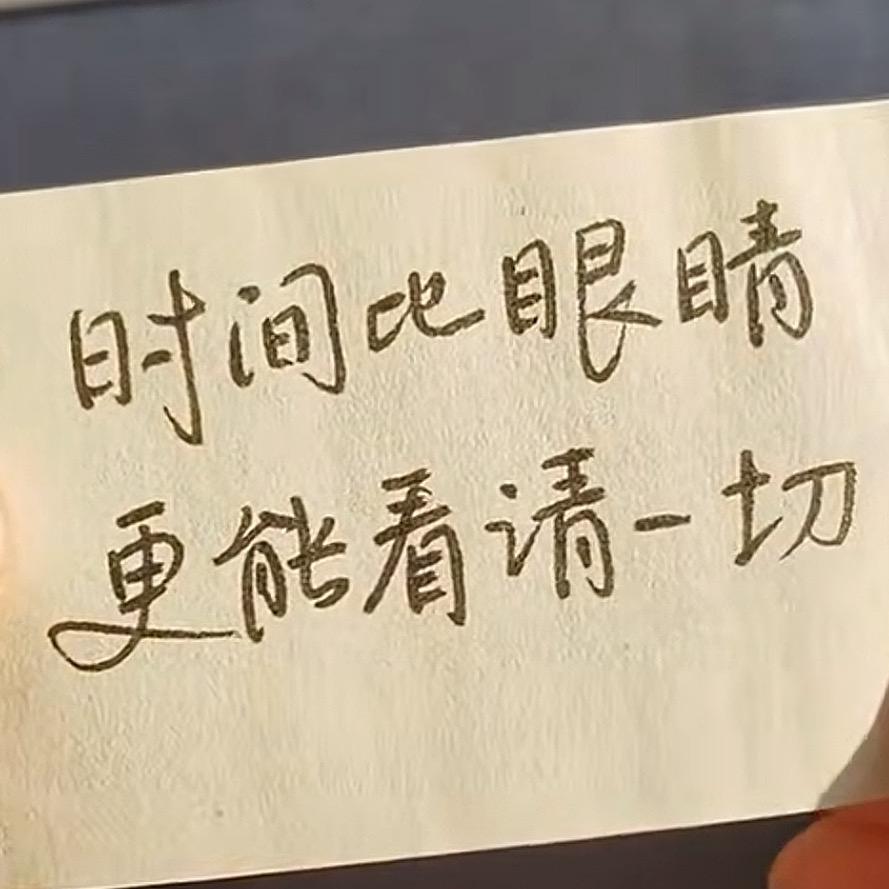 时间比眼睛
更能看请一切